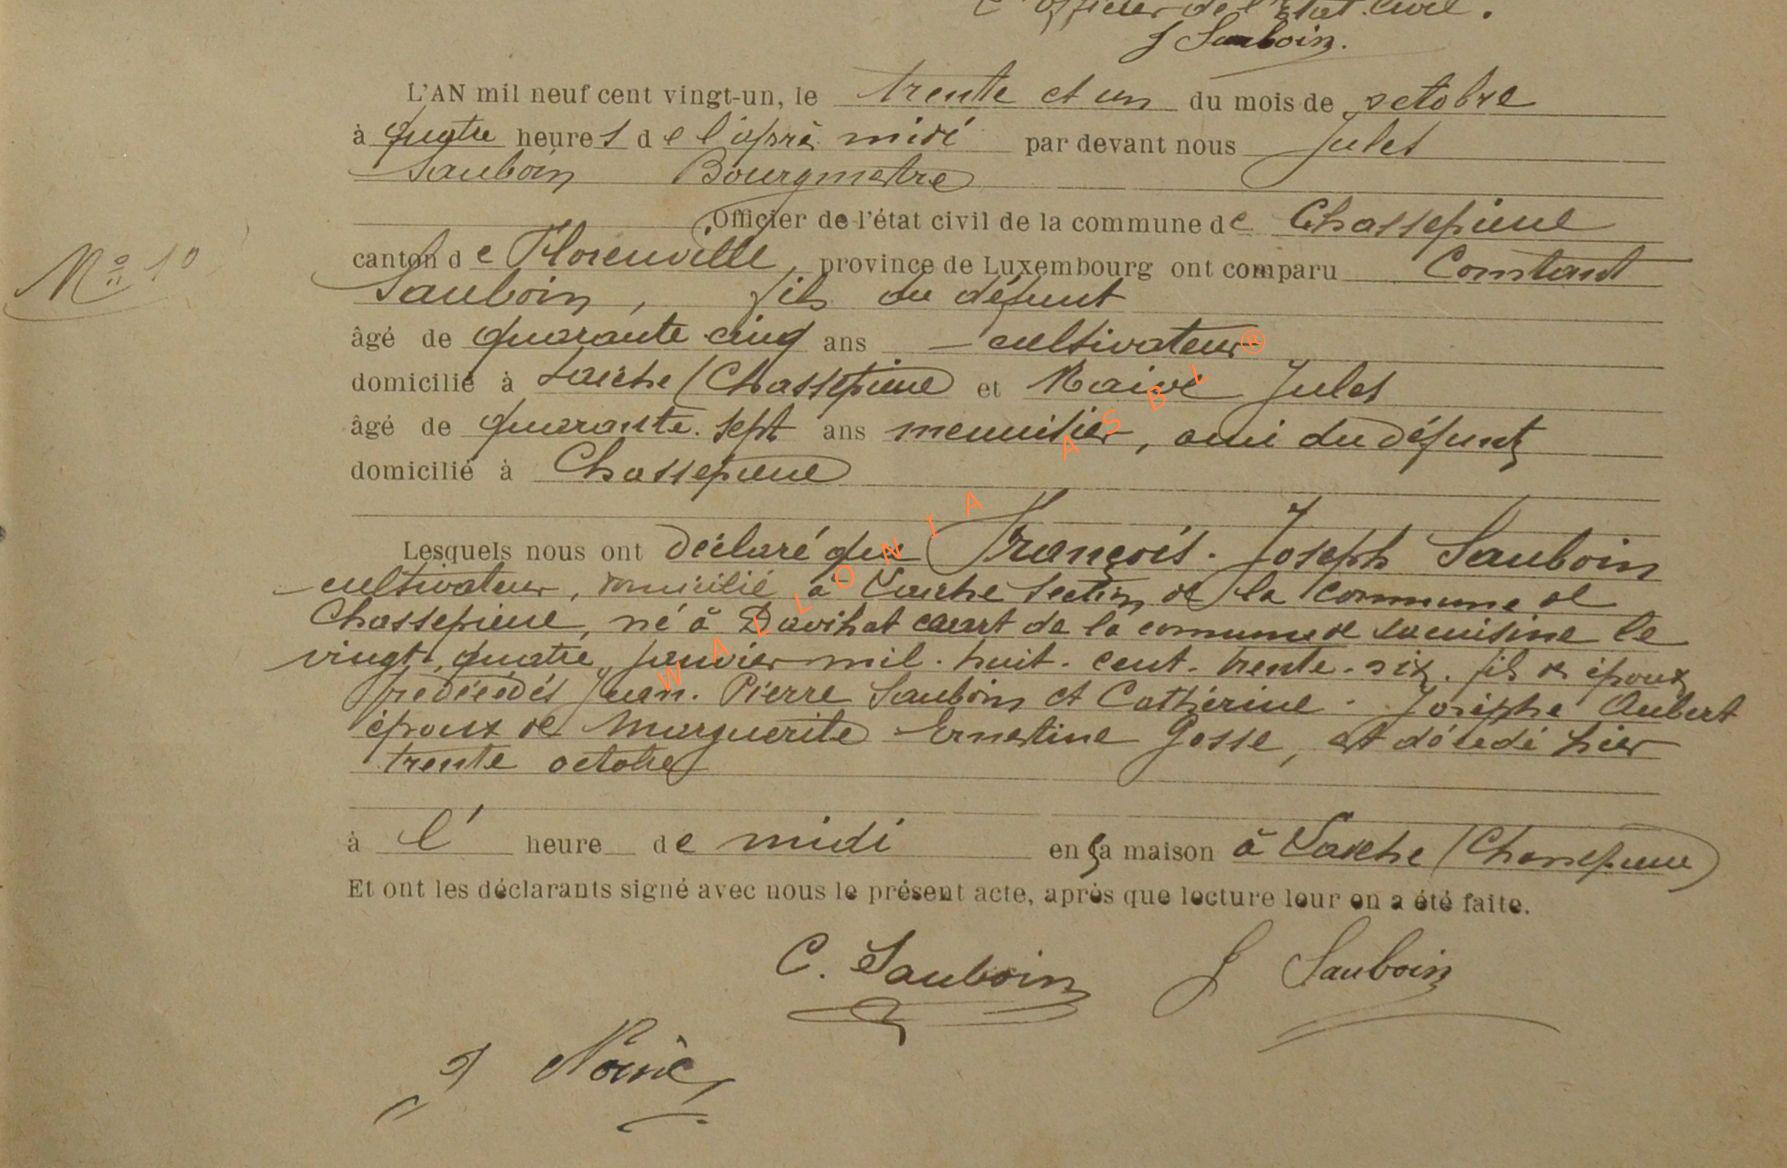 L'officier de l'Etat Civil.
J Sauboin.
L'AN mil neuf cent vingt-un, le trente et un du mois de octobre
à quatre heures de l'après midi par devant nous Jules
Sauboin Bourgmestre
Officier de l'état civil de la commune de Chassepierre
N° 10
canton de Florenville, province de Luxembourg ont comparu Constant
Sauboin, fils du défunt
âgé de quarante cinq ans cultivateur
domicilié à Laiche (Chassepierre et Jules
âgé de quarante. sept ans menuisier, ami du défunt
domicilié à Chassepierre
Lesquels nous ont déclaré que François. Joseph Sauboin
cultivateur, domicilié à Laiche section de la commune de
Chassepierre, né à de la commune de Lacuisine le
vingt quatre janvier mil. huit. cent. trente. six. fils des époux
prédécédés Jean. Pierre Sauboin et Cathérine. Josèphe Aubert
époux de Marguerite Ernestine Gosse, est décédé hier
trente octobre
à l' heure de midi en sa maison à Laiche (Chassepierre)
Et ont les déclarants signé avec nous le présent acte, après que lecture leur en a été faite.
C. Sauboin J Sauboin
J
WALLONIA ASBL ®